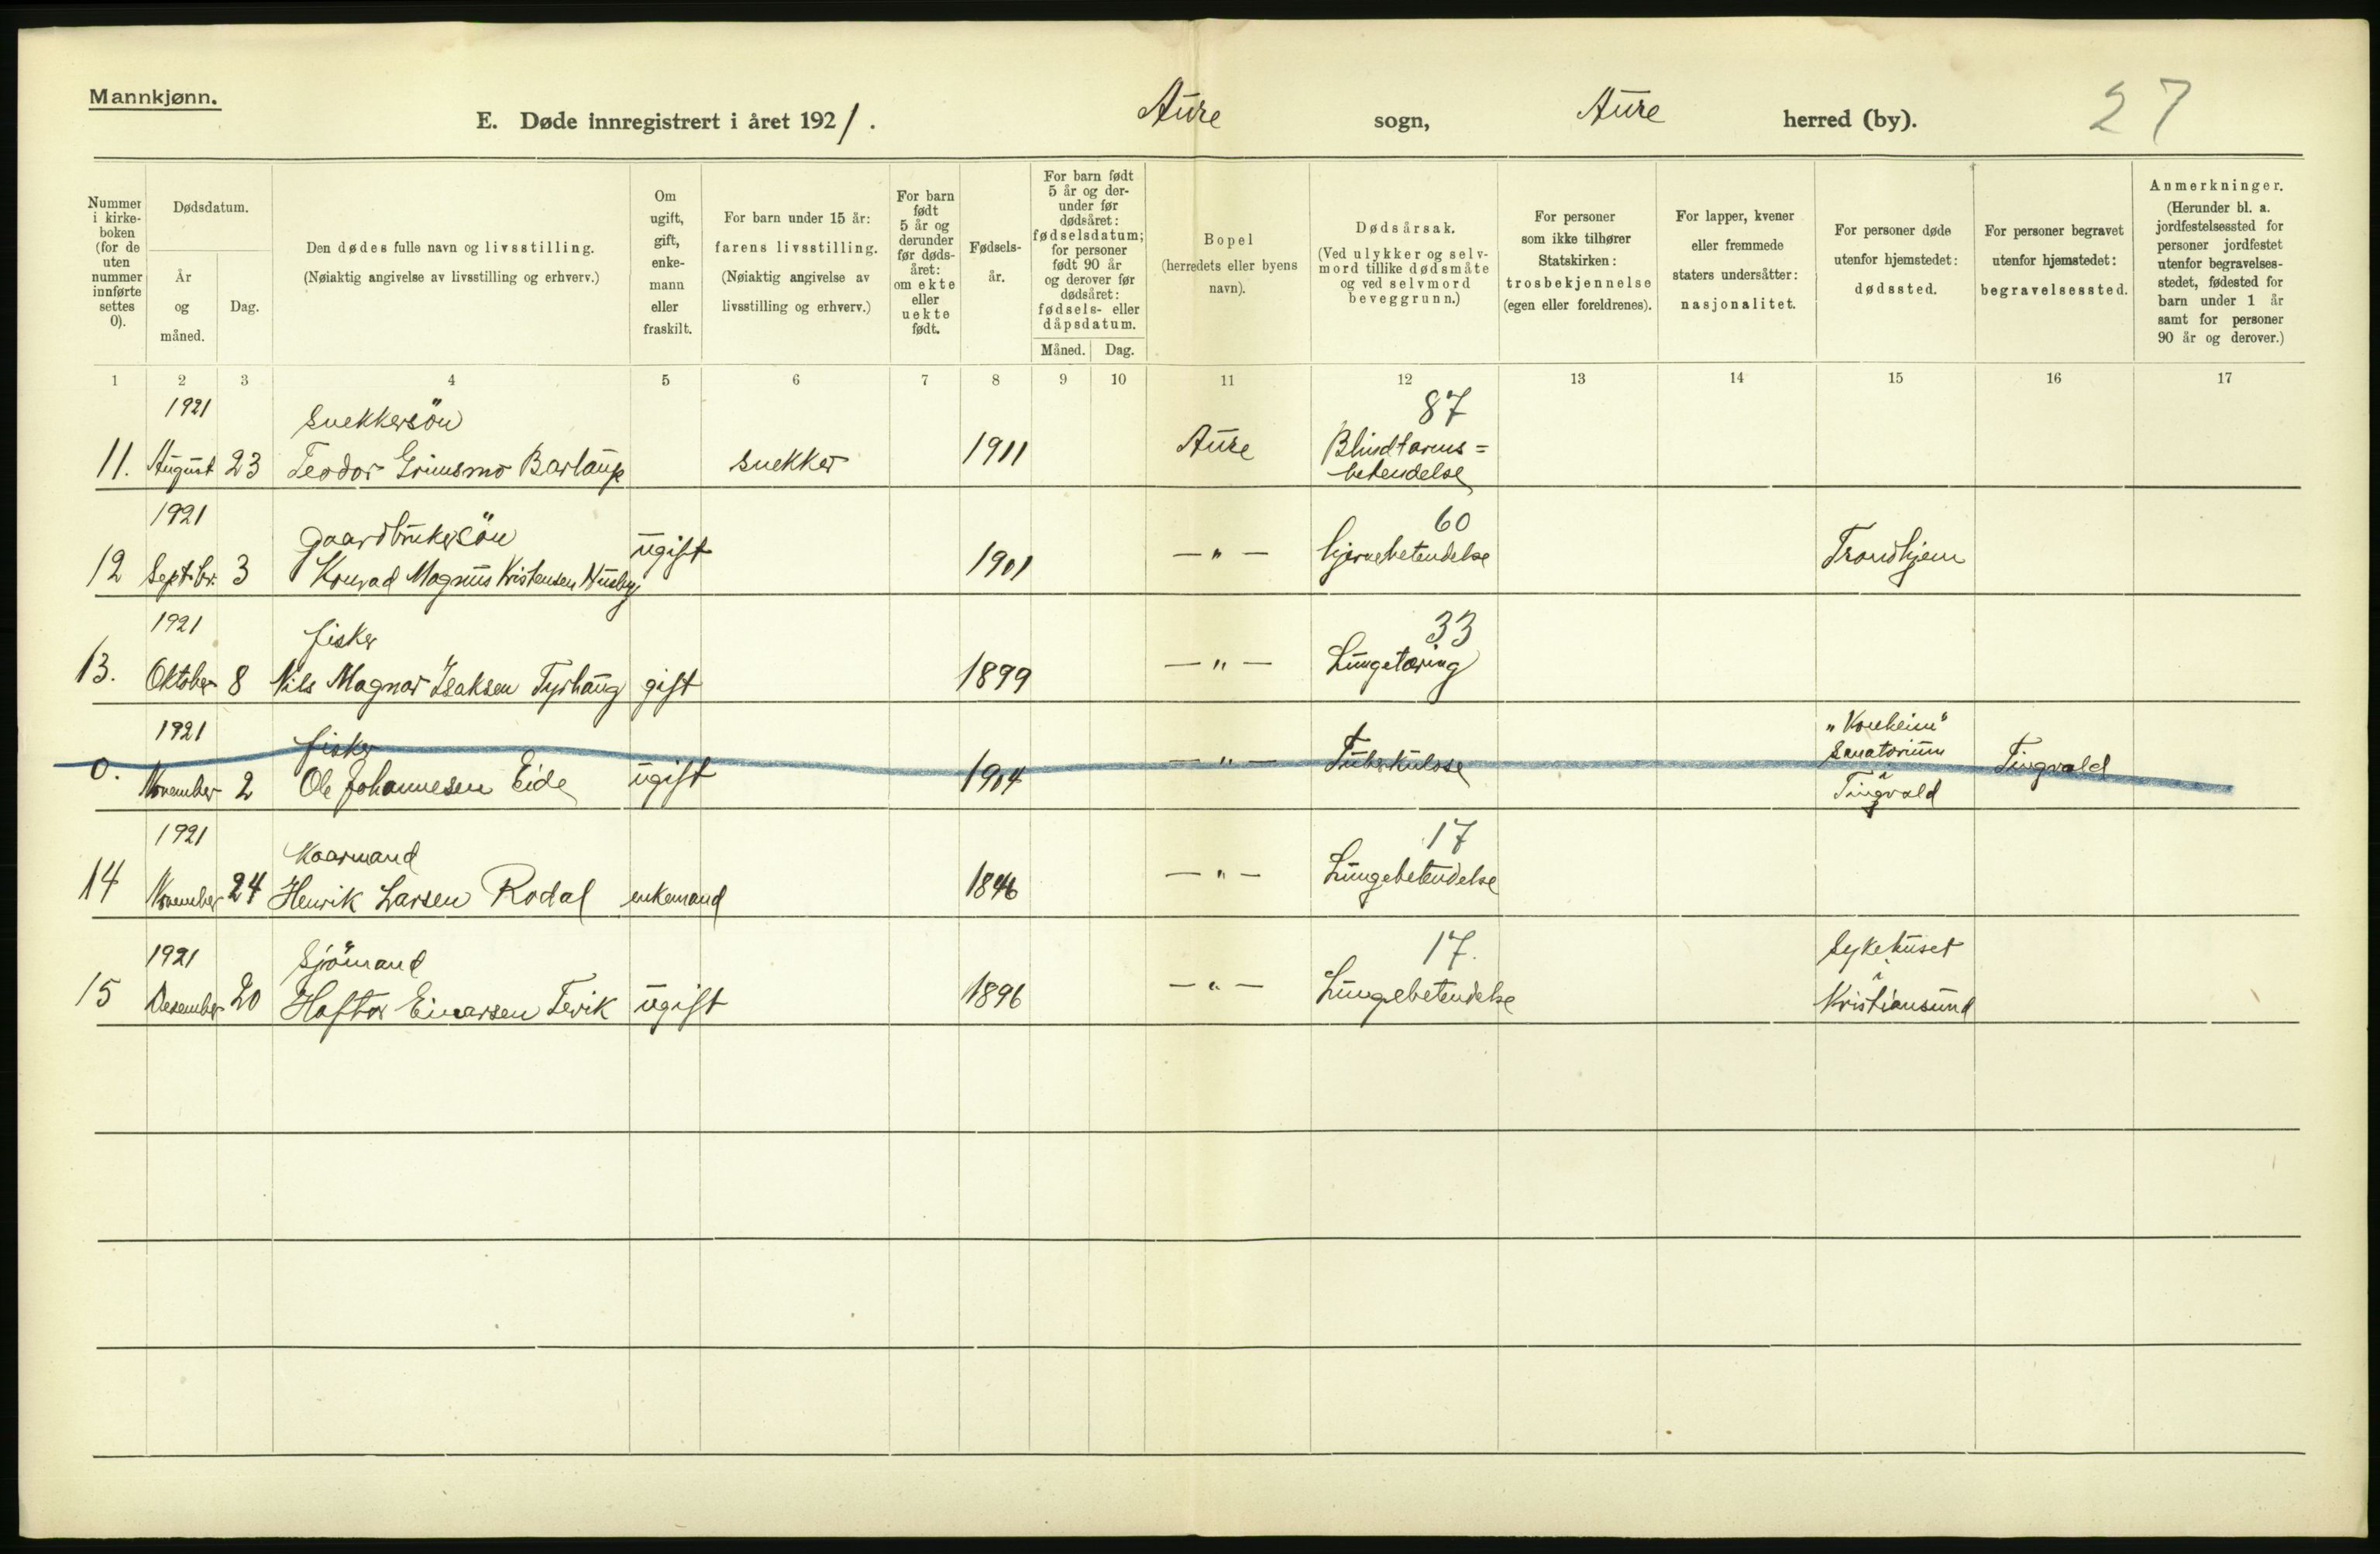 Mannkjønn.
E. Døde innregistrert i året 1921. Aure sogn, Aure herred (by). 27
Nummer
i kirke-
boken
(for de
uten
nummer
innførte
settes
0).
Dødsdatum.
År
og
måned.
Dag.
Den dødes fulle navn og livsstilling.
(Nøiaktig angivelse av livsstilling og erhverv.)
Om
ugift,
gift,
enke-
mann
eller
fraskilt.
For barn under 15 år:
farens livsstilling.
(Nøiaktig angivelse av
livsstilling og erhverv.)
For barn
født
5 år og
derunder
før døds-
året:
om ekte
eller
uekte
født.
Fødsels-
år.
For barn født
5 år og der-
under før
dødsåret:
fødselsdatum;
for personer
født 90 år
og derover før
dødsåret:
fødsels- eller
dåpsdatum.
Måned. Dag.
Bopel
(herredets eller byens
navn).
Dødsårsak.
(Ved ulykker og selv-
mord tillike dødsmåte
og ved selvmord
beveggrunn.)
For personer
som ikke tilhører
Statskirken:
trosbekjennelse
(egen eller foreldrenes).
For lapper, kvener
eller fremmede
staters undersåtter:
nasjonalitet.
For personer døde
utenfor hjemstedet:
dødssted.
For personer begravet
utenfor hjemstedet:
begravelsessted.
Anmerkninger.
(Herunder bl. a.
jordfestelsessted for
personer jordfestet
utenfor begravelses-
stedet, fødested for
barn under 1 år
samt for personer
90 år og derover.)
1 2 3 4 5 6 7 8 9 10 11 12 13 14 15 16 17
1921 Snekkersön 87
11. August 23 Teodor Grimsmo Barlaup snekker 1911 Aure Blindtarms=
betendelse
1921 Gaardbrukersön 60
12 Septbr. 3 Konrad Magnus Kristensen Husby ugift 1901 — " — hjernebetendelse Trondhjem
1921 fisker 33
13. Oktober 8 Nils Magnar Isaksen Tyrhaug gift 1899 — " — Lungetæring
1921 fisker "Konheim"
Sanatorium
0. November 2 Ole Johannesen Eide ugift 1904 — " — Tuberkulose i Tingvold Tingvold
1921 Kaarmand 17
14 November 24 Henrik Larsen Rodal enkemand 1846 — " — Lungebetendelse
1921 Sjömand 17. Sykehuset
i
15 Desember 20 Haftor Einarsen Tevik ugift 1896 — " — Lungebetendelse Kristiansund